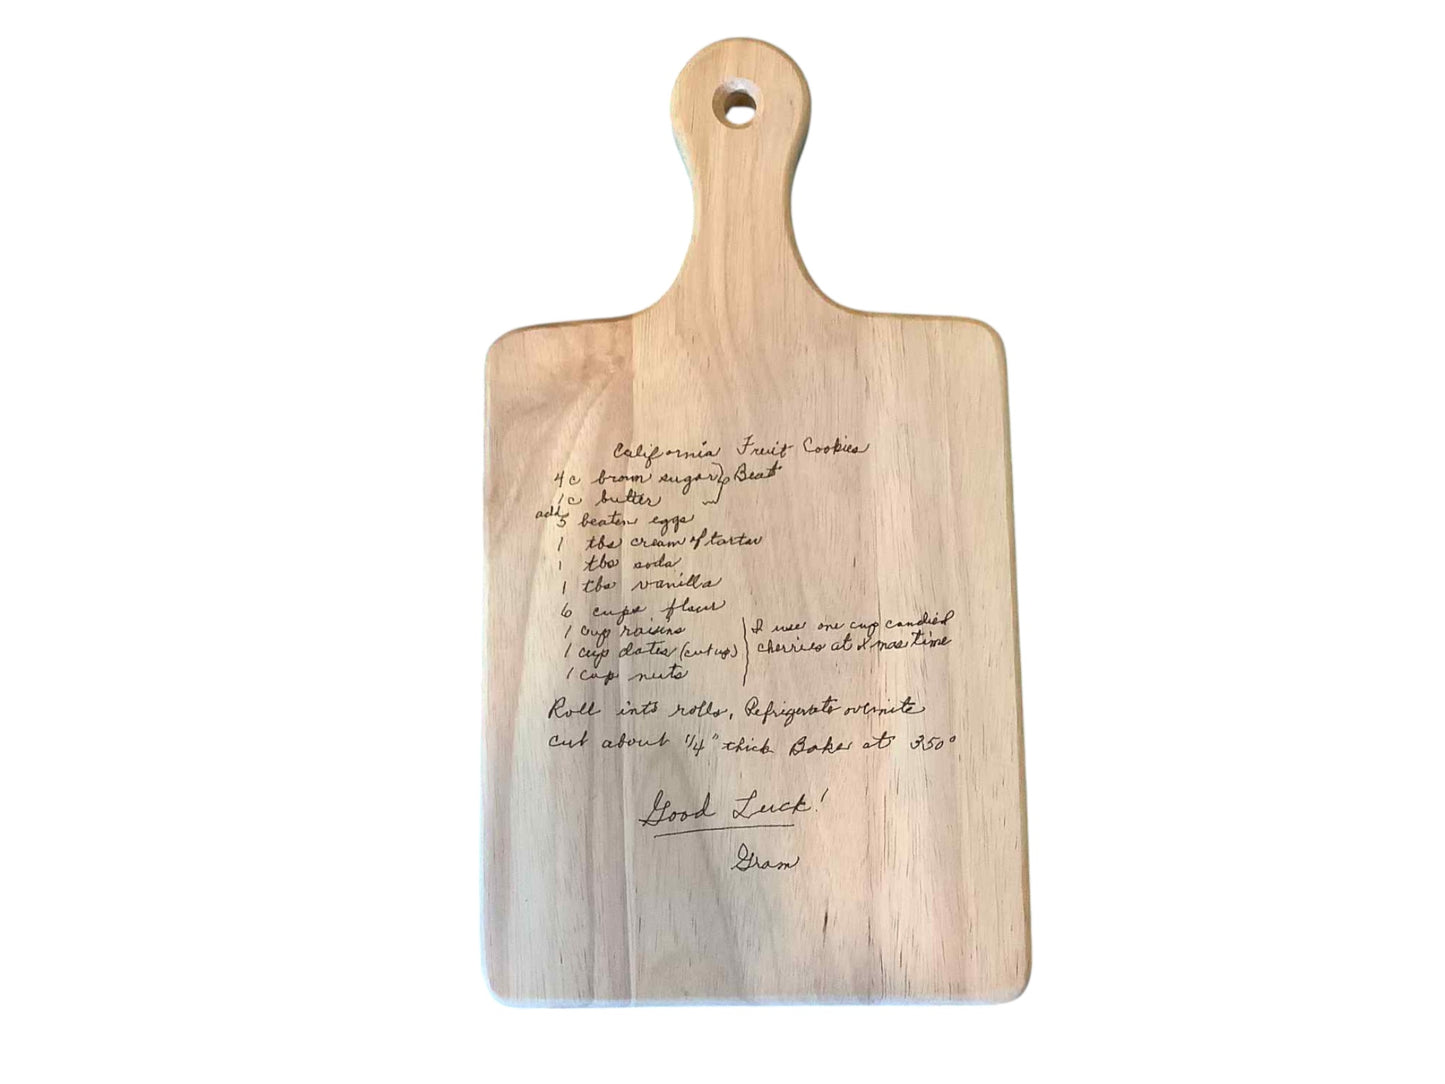 California Fruit Cookies
4 c brown sugar } Beat
1 c butter
add 5 beaten eggs
1 tbs cream of tarter
1 tbs soda
1 tbs vanilla
6 cups flour
1 cup raisins
1 cup dates (cut up)
1 cup nuts
I use one cup candied
cherries at Xmas time
Roll into rolls, Refrigerate overnite
cut about 1/4" thick Bake at 350°
Good Luck!
Gram